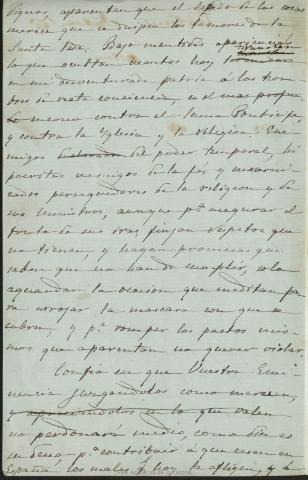 signos, aparentan que el estado de las cosas
merece que se disipen los temores de la
Santa Sede. Bajo mentidas apariencias
lo que ocultan cuantos hoy tiranizan
en mi desventurada patria á los hom-
bres de recta conciencia, es el mas
encono contra el Sumo Pontífice,
y contra la Yglesia y la religion. Ene-
migos del poder temporal, hi-
pócritas enemigos de la fé, y encarni-
zados perseguidores de la religion y de
sus ministros, aunque pª asegurar el
fruto de sus iras, finjan respetos que
no tienen, y hagan promesas que
saben que no han de cumplir, solo
aguardan la ocasion que meditan pa
ra arrojar la mascara con que se
cubren, y pª romper los pactos mis-
mos que aparentan no querer violar.
Confío en que Vuestra Emi-
nencia juzgandolos como merecen,
y apreciandolos en lo que valen
no perdonará medio, como bien es
su deseo, pª contribuir á que cesen en
España los males q hoy la afligen, y á